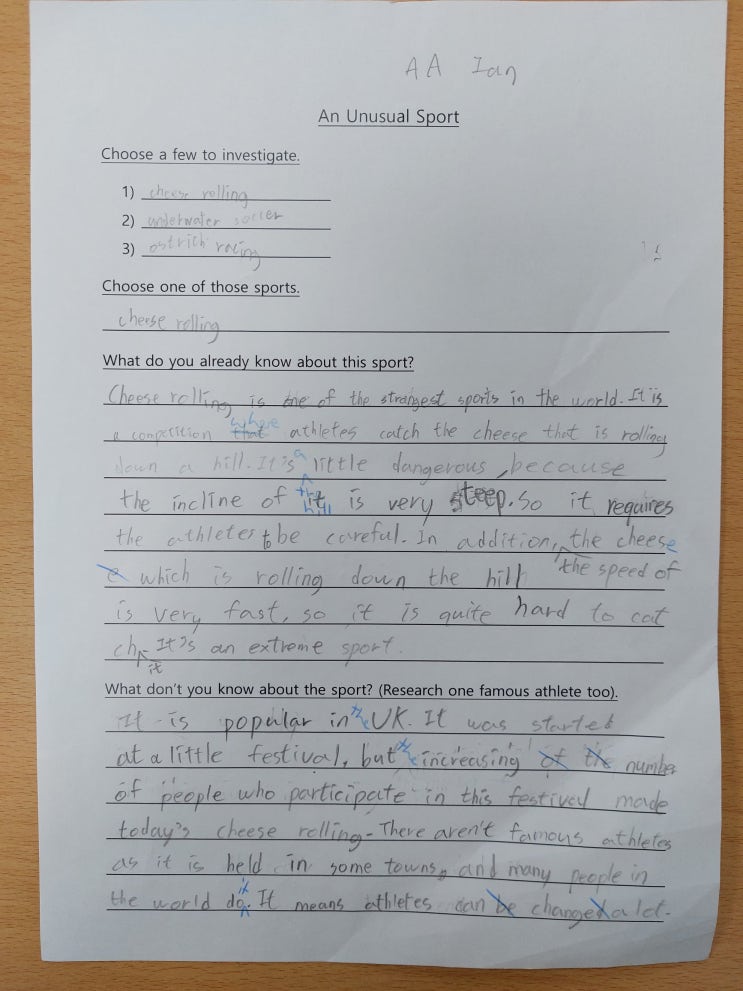 AA Ian
An Unusual Sport
Choose a few to investigate.
1) cheese rolling
2) underwater soccer
3) ostrich racing
Choose one of those sports.
cheese rolling
What do you already know about this sport?
Cheese rolling is one of the strangest sports in the world. It is
where
a competition that athletes catch the cheese that is rolling
down a hill. It's a little dangerous, because
the incline of it the hill is very steep. So it requires
the athletes to be careful. In addition, the cheese
e which is rolling down the hill the speed of
is very fast, so it is quite hard to cat
ch. It's an extreme sport.
it
What don't you know about the sport? (Research one famous athlete too).
It is popular in the UK. It was started
at a little festival, but the increasing of the number
of people who participate in this festival made
today's cheese rolling. There aren't famous athletes
as it is held in some towns, and many people in
the world do it. It means athletes can be changed a lot.